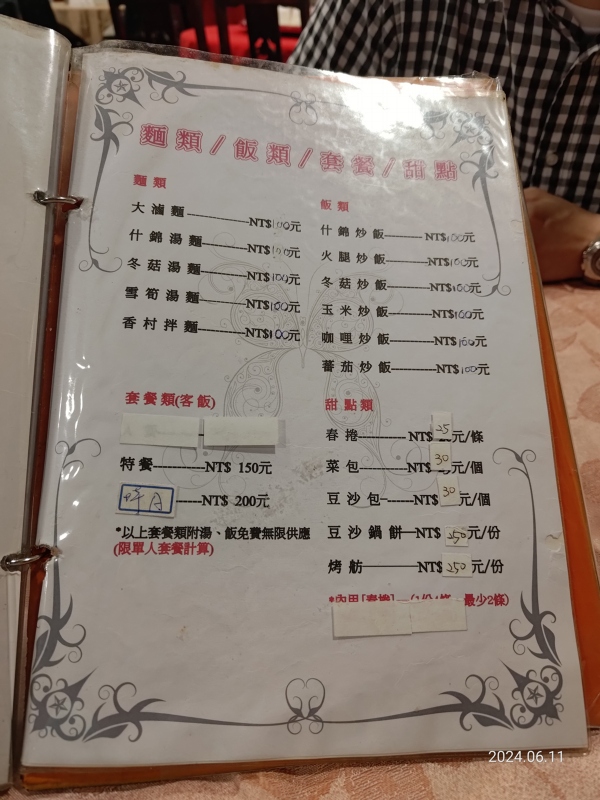 麵類/飯類/套餐/甜點
麵類
大滷麵 NT$100元
什錦湯麵 NT$100元
冬菇湯麵 NT$100元
雪筍湯麵 NT$100元
香村拌麵 NT$100元
飯類
什錦炒飯 NT$100元
火腿炒飯 NT$100元
冬菇炒飯 NT$100元
玉米炒飯 NT$100元
咖哩炒飯 NT$100元
蕃茄炒飯 NT$100元
套餐類(客飯)
特餐 NT$ 150元
NT$ 200元
*以上套餐類附湯、飯免費無限供應
(限單人套餐計算)
甜點類
春捲 NT$ 25元/條
菜包 NT$ 30元/個
豆沙包 NT$ 30元/個
豆沙鍋餅 NT$ 250元/份
烤舫 NT$ 250元/份
最少2條)
2024.06.11